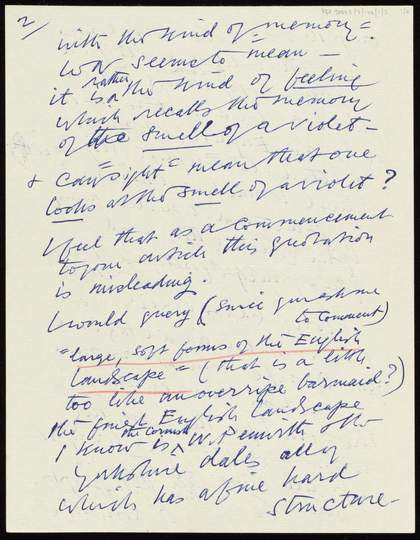 2/
with the kind of memory".
WN seems to mean —
it is rather the kind of feeling
which recalls the memory
of the smell of a violet —
+ can "sight" mean that one
looks at the smell of a violet?
I feel that as a commencement
to your article this quotation
is misleading.
I would query (since you ask me
to comment)
"large, soft forms of the English
landscape" (that is a little
too like an overripe barmaid?)
the finest English landscape
I know is the Cornish W. Penwith & the
Yorkshire dales all of
which has a fine hard
structure —